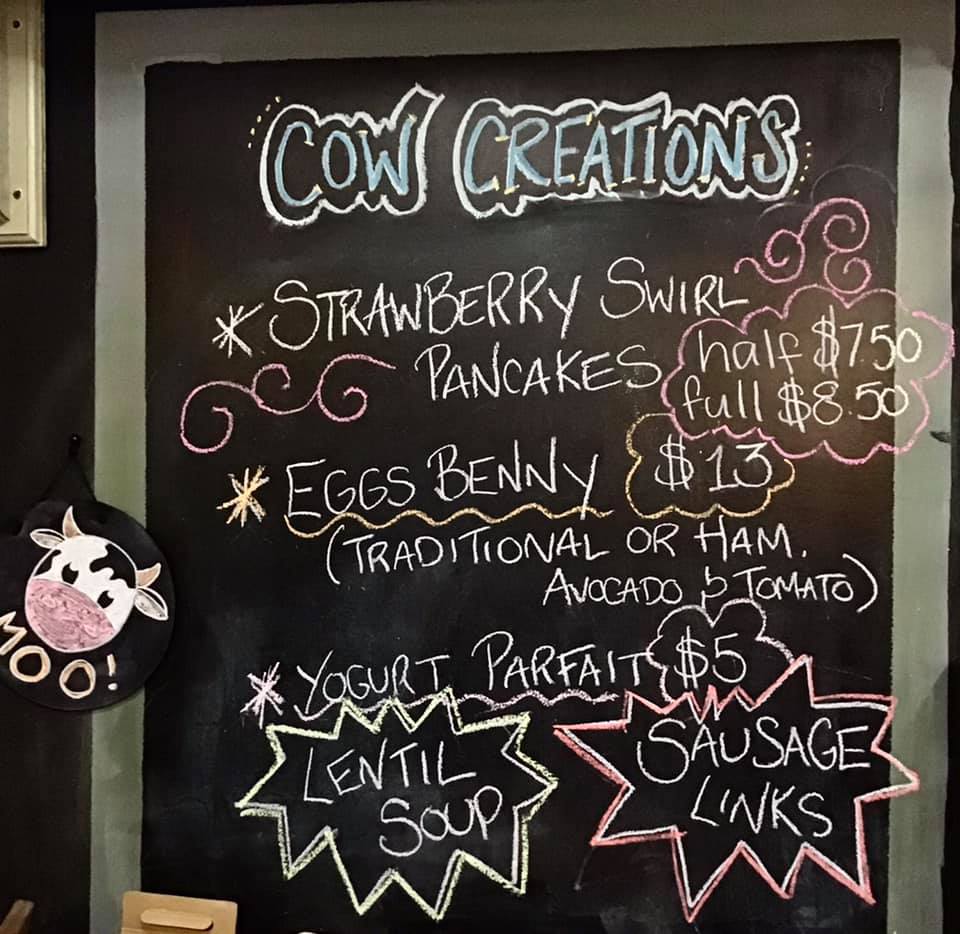 COW CREATIONS
* STRAWBERRY SWIRL
PANCAKES
half $7.50
full $8.50
* EGGS BENNY $13
(TRADITIONAL OR HAM,
AVOCADO & TOMATO)
* YOGURT PARFAIT $5
LENTIL
SOUP
SAUSAGE
LINKS
MOO!